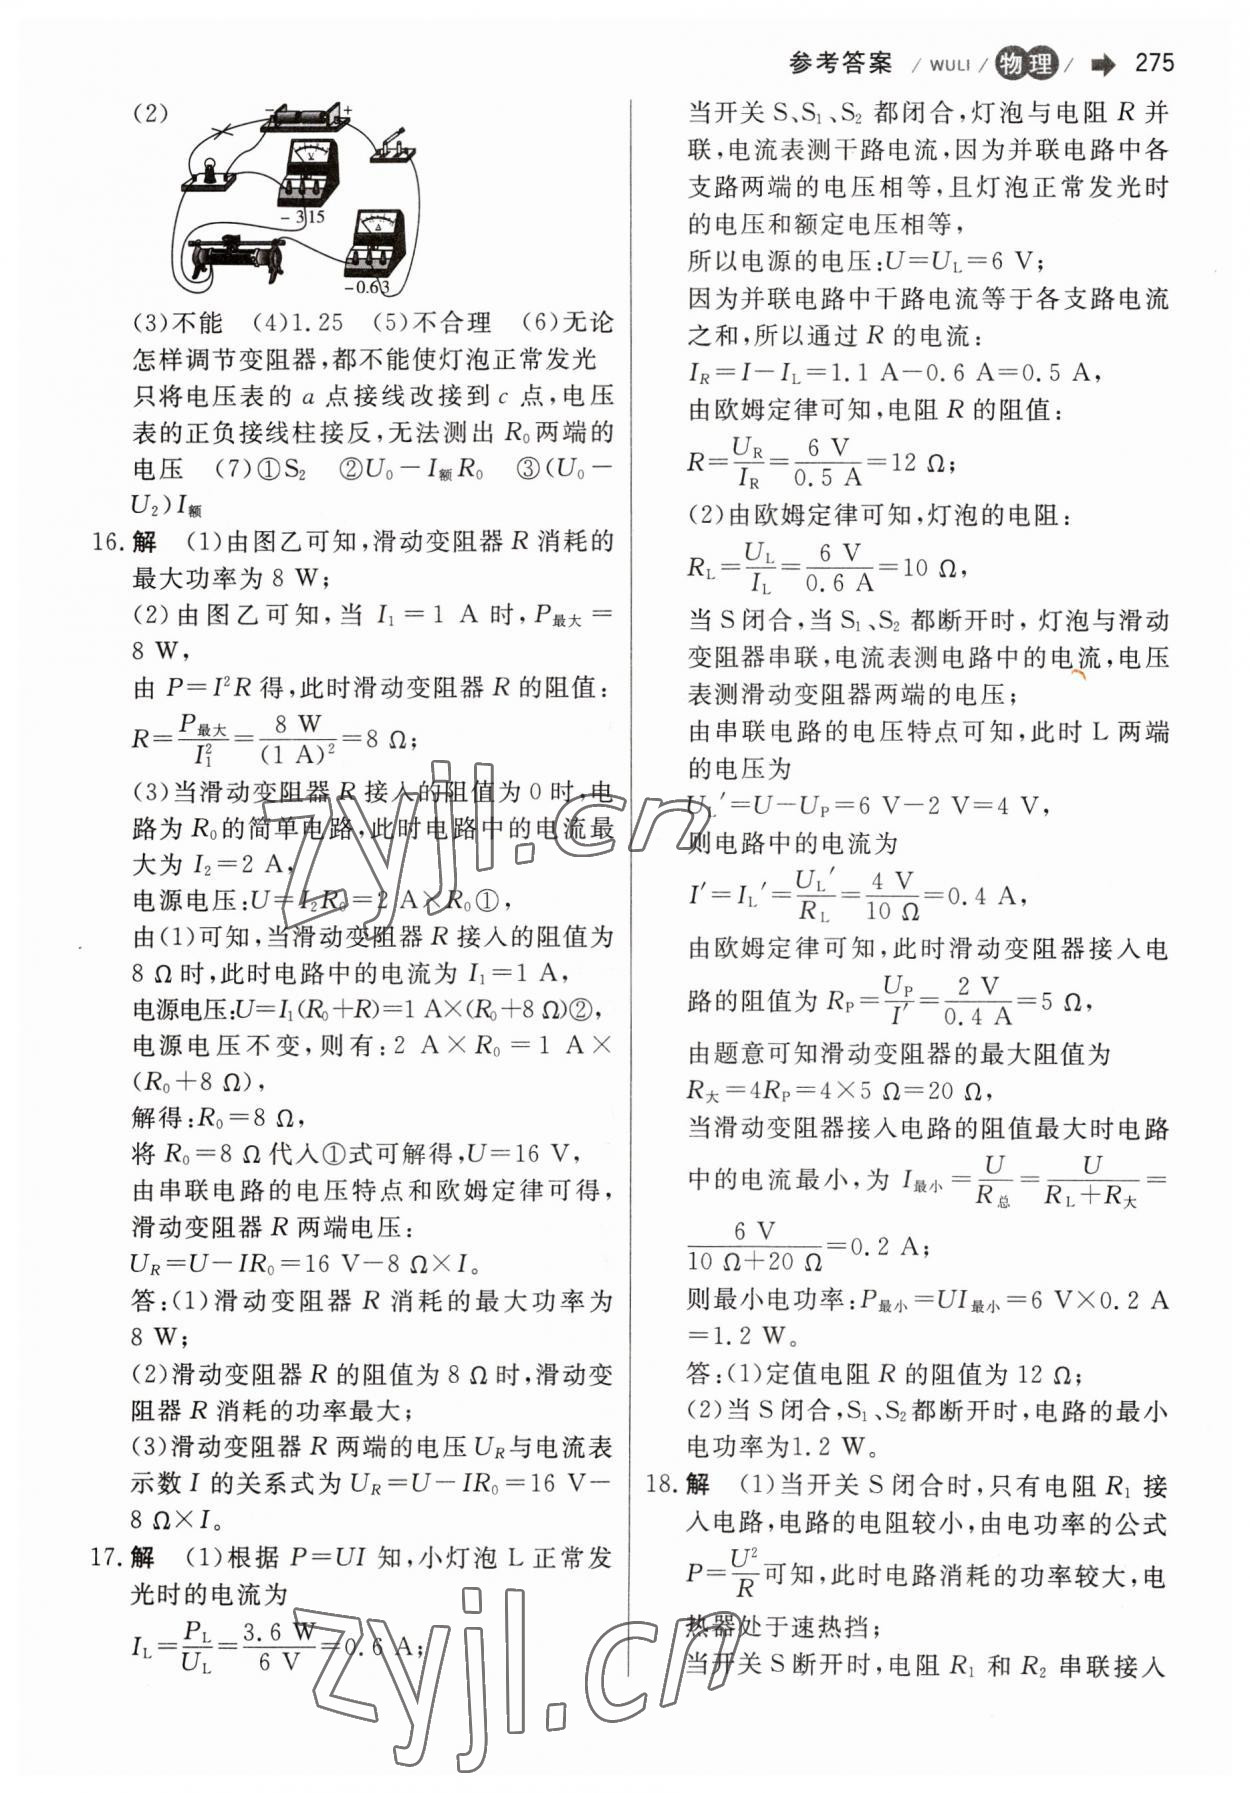 参考答案 / WULI / 物理 / 275
(2)
- +
V
-315
A
-0.63
(3)不能 (4)1.25 (5)不合理 (6)无论
怎样调节变阻器,都不能使灯泡正常发光
只将电压表的 a 点接线改接到 c 点,电压
表的正负接线柱接反,无法测出 R₀两端的
电压 (7)①S₂ ②U₀－I额R₀ ③(U₀－
U₂)I额
16. 解 (1)由图乙可知,滑动变阻器 R 消耗的
最大功率为 8 W;
(2)由图乙可知,当 I₁＝1 A 时,P最大＝
8 W,
由 P＝I²R 得,此时滑动变阻器 R 的阻值:
R＝P最大/I₁²＝8 W/(1 A)²＝8 Ω;
(3)当滑动变阻器 R 接入的阻值为 0 时,电
路为 R₀的简单电路,此时电路中的电流最
大为 I₂＝2 A,
电源电压:U＝I₂R₀＝2 A×R₀①,
由(1)可知,当滑动变阻器 R 接入的阻值为
8 Ω时,此时电路中的电流为 I₁＝1 A,
电源电压:U＝I₁(R₀＋R)＝1 A×(R₀＋8 Ω)②,
电源电压不变,则有:2 A×R₀＝1 A×
(R₀＋8 Ω),
解得:R₀＝8 Ω,
将 R₀＝8 Ω代入①式可解得,U＝16 V,
由串联电路的电压特点和欧姆定律可得,
滑动变阻器 R 两端电压:
U_R＝U－IR₀＝16 V－8 Ω×I。
答:(1)滑动变阻器 R 消耗的最大功率为
8 W;
(2)滑动变阻器 R 的阻值为 8 Ω时,滑动变
阻器 R 消耗的功率最大;
(3)滑动变阻器 R 两端的电压 U_R与电流表
示数 I 的关系式为 U_R＝U－IR₀＝16 V－
8 Ω×I。
17. 解 (1)根据 P＝UI 知,小灯泡 L 正常发
光时的电流为
I_L＝P_L/U_L＝3.6 W/6 V＝0.6 A;
当开关 S、S₁、S₂ 都闭合,灯泡与电阻 R 并
联,电流表测干路电流,因为并联电路中各
支路两端的电压相等,且灯泡正常发光时
的电压和额定电压相等,
所以电源的电压:U＝U_L＝6 V;
因为并联电路中干路电流等于各支路电流
之和,所以通过 R 的电流:
I_R＝I－I_L＝1.1 A－0.6 A＝0.5 A,
由欧姆定律可知,电阻 R 的阻值:
R＝U_R/I_R＝6 V/0.5 A＝12 Ω;
(2)由欧姆定律可知,灯泡的电阻:
R_L＝U_L/I_L＝6 V/0.6 A＝10 Ω,
当 S 闭合,当 S₁、S₂ 都断开时,灯泡与滑动
变阻器串联,电流表测电路中的电流,电压
表测滑动变阻器两端的电压;
由串联电路的电压特点可知,此时 L 两端
的电压为
U_L′＝U－U_P＝6 V－2 V＝4 V,
则电路中的电流为
I′＝I_L′＝U_L′/R_L＝4 V/10 Ω＝0.4 A,
由欧姆定律可知,此时滑动变阻器接入电
路的阻值为 R_P＝U_P/I′＝2 V/0.4 A＝5 Ω,
由题意可知滑动变阻器的最大阻值为
R大＝4R_P＝4×5 Ω＝20 Ω,
当滑动变阻器接入电路的阻值最大时电路
中的电流最小,为 I最小＝U/R总＝U/(R_L＋R大)＝
6 V/(10 Ω＋20 Ω)＝0.2 A;
则最小电功率:P最小＝UI最小＝6 V×0.2 A
＝1.2 W。
答:(1)定值电阻 R 的阻值为 12 Ω;
(2)当 S 闭合,S₁、S₂都断开时,电路的最小
电功率为1.2 W。
18. 解 (1)当开关 S 闭合时,只有电阻 R₁ 接
入电路,电路的电阻较小,由电功率的公式
P＝U²/R可知,此时电路消耗的功率较大,电
热器处于速热挡;
当开关 S 断开时,电阻 R₁ 和 R₂ 串联接入
zyjl.cn
zyjl.cn